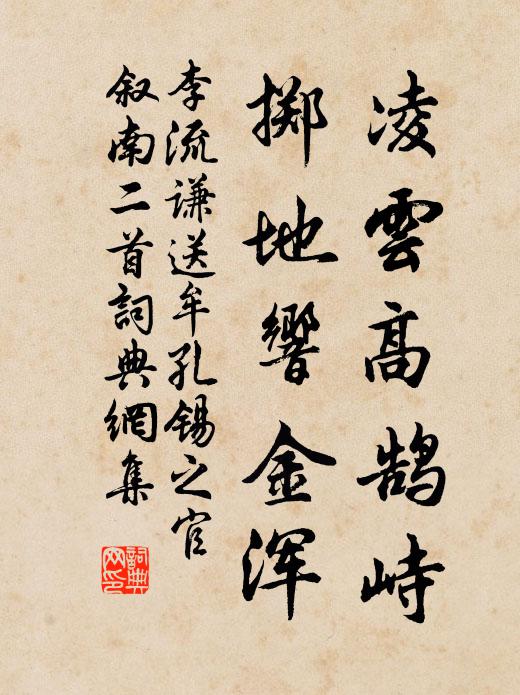 凌雲高鹄峙
擲地響金渾
李流謙送牟孔錫之官
叙南二首詞典網集
詞典網印